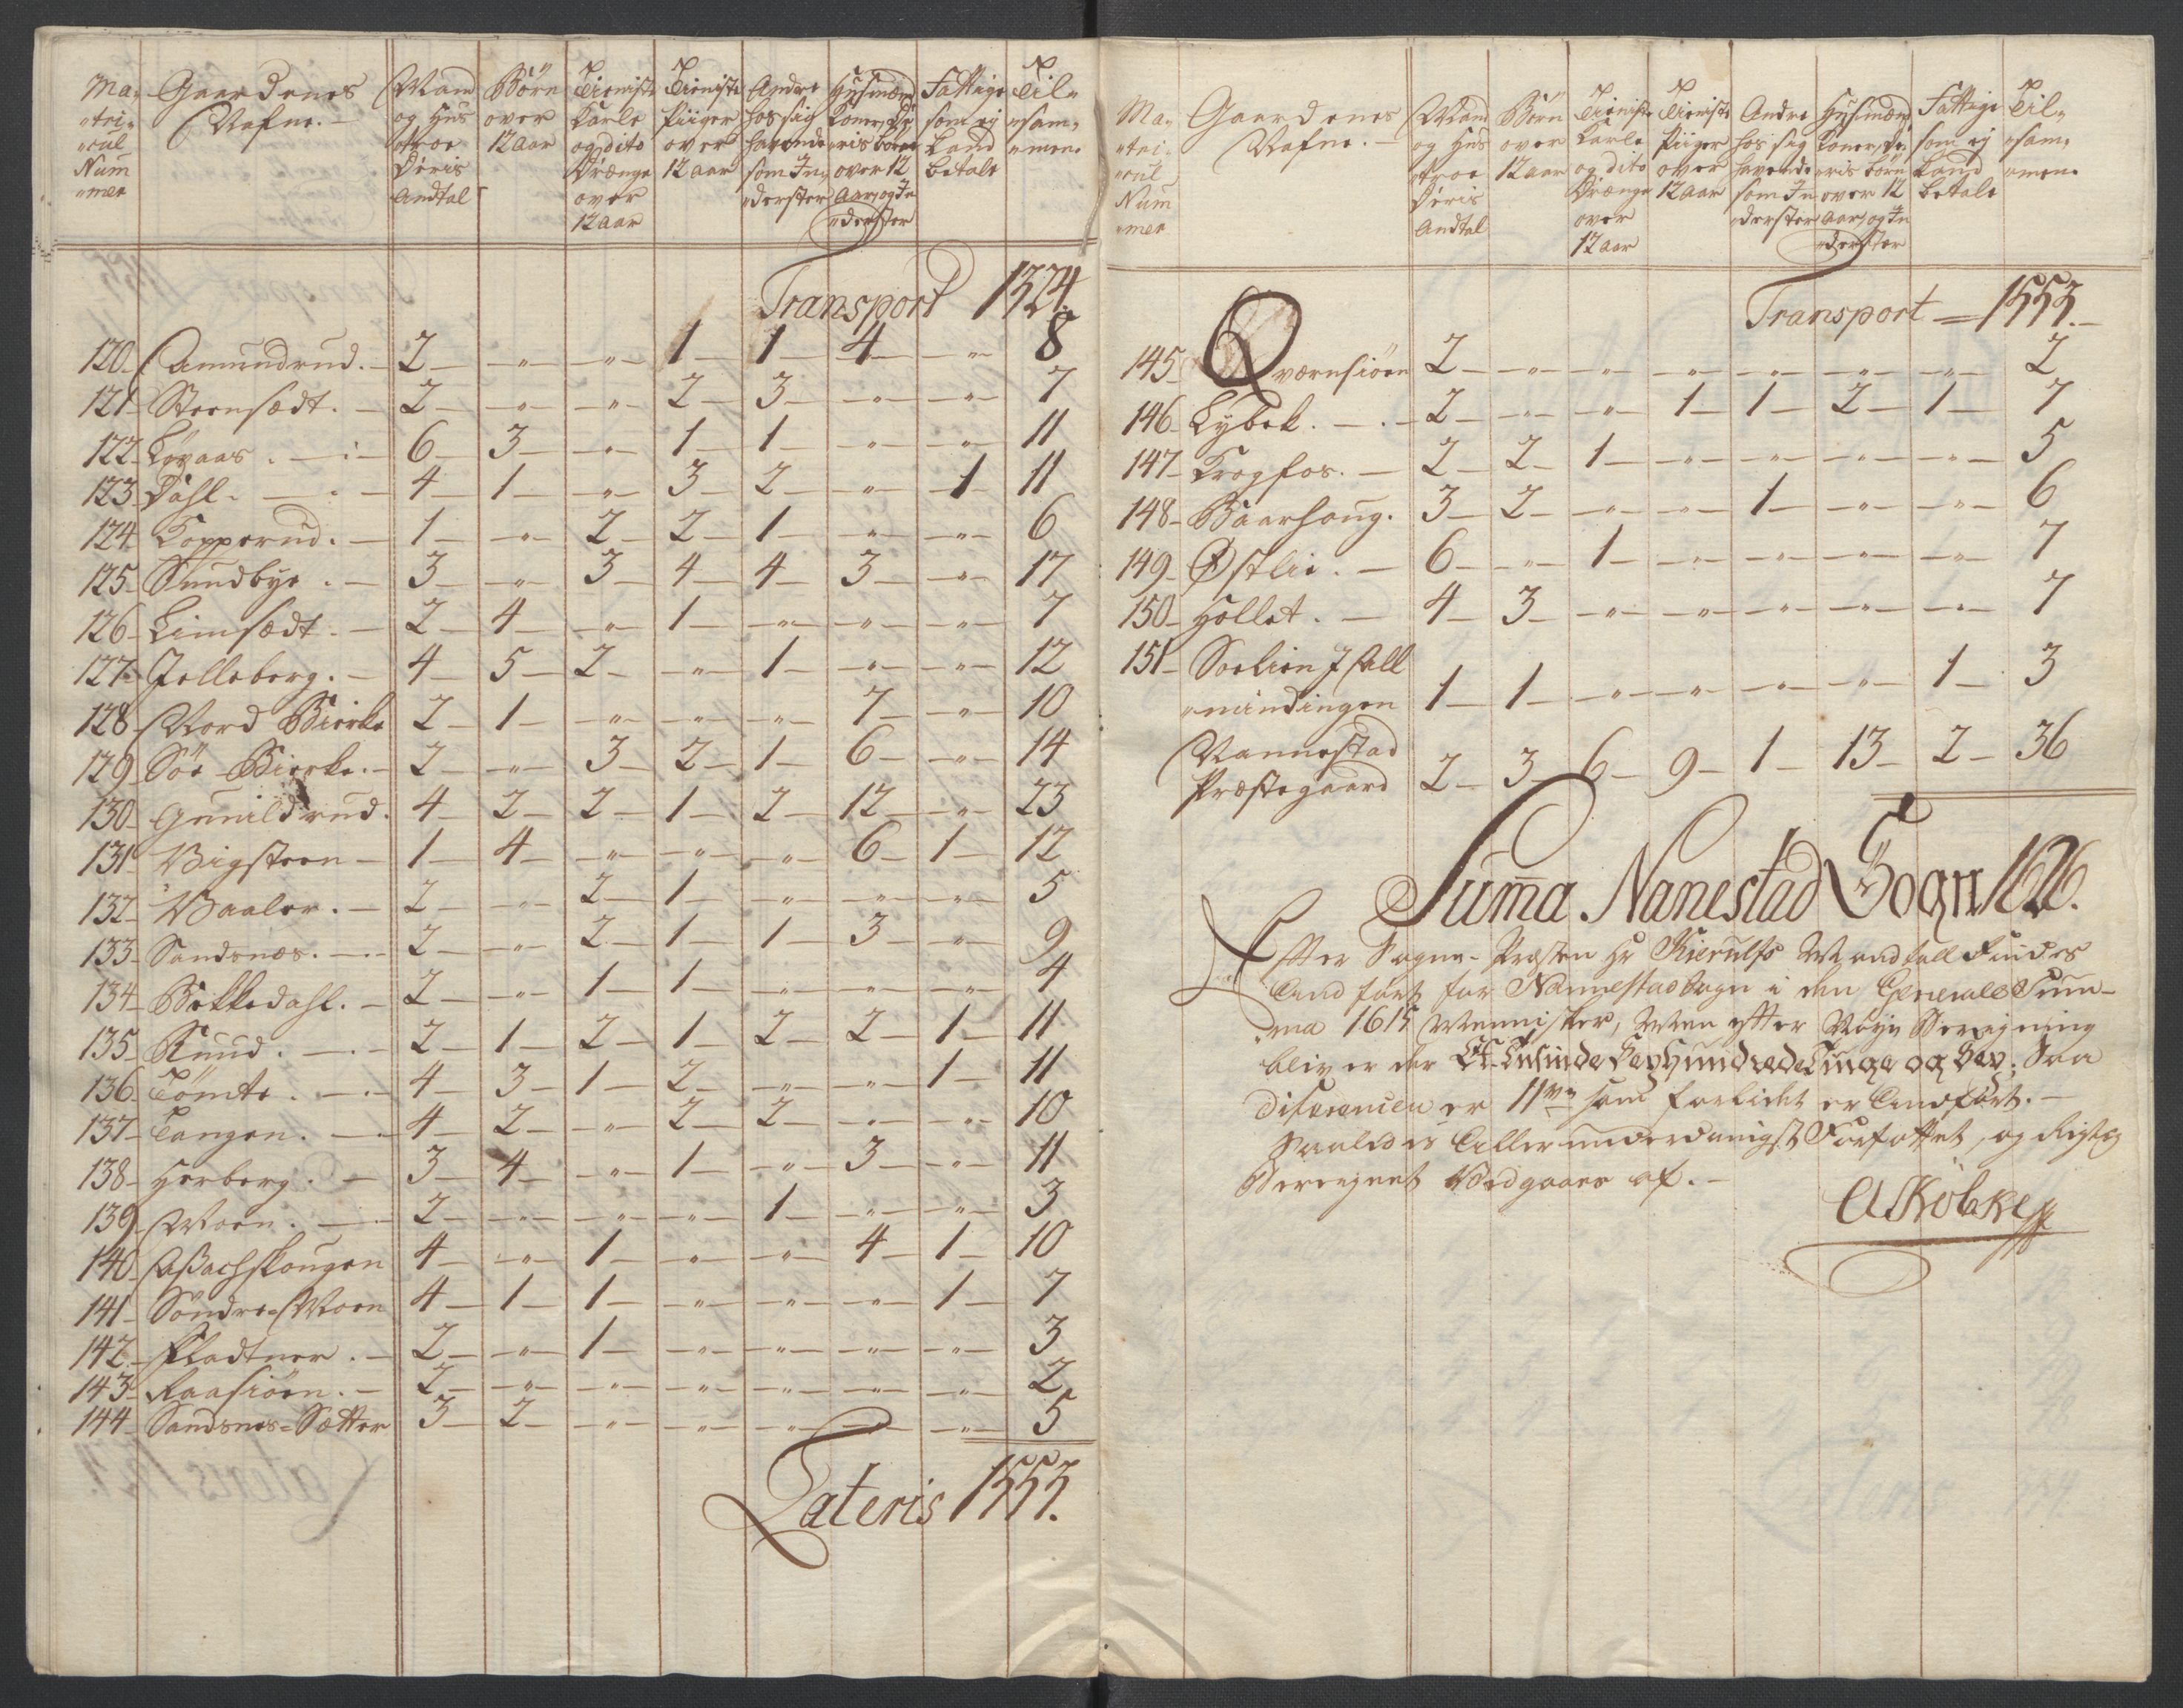 Ma-
"tri-
"cul
Num
"mer
Gaardenes
Nafne. -
Mand
og Hus
troe
Deris
Andtal
Börn
over
12 aar
Tieniste
Karle
og dito
Drænge
over
12 aar
Tieniste
Piiger
over
12 aar
Andre
hos sig
havende
som In-
"derster
Husmænd
Koner, De
"ris börn
over 12
Aar, og In
"derster
Fattige
som ej
kand
betale
Til-
"sam-
"men
Transport 1324.
120 Amundrud. - 2 - " - " - 1 - 1 - 4 - " - 8
121 Steensædt. - 2 - " - " - 2 - 3 - " - " - 7
122 Löpaas. - 6 - 3 - " - 1 - 1 - " - " - 11
123 Dahl. - 4 - 1 - " - 3 - 2 - " - 1 - 11
124 Kopperud. - 1 - " - 2 - 2 - 1 - " - " - 6
125 Sundbye. - 3 - " - 3 - 4 - 4 - 3 - " - 17
126 Limsædt. - 2 - 4 - " - 1 - " - " - " - 7
127 Jelleberg. - 4 - 5 - 2 - " - 1 - " - " - 12
128 Nord Bierke 2 - 1 - " - " - " - 7 - " - 10
129 Sör Bierke. - 2 - " - 3 - 2 - 1 - 6 - " - 14
130 Gunildrud. 4 - 2 - 2 - 1 - 2 - 12 - " - 23
131 Vigsteen - 1 - 4 - " - " - " - 6 - 1 - 12
132 Baaler. - 2 - " - 2 - 1 - " - " - " - 5
133 Sandsnæs. - 2 - " - 2 - 1 - 1 - 3 - " - 9
134 Bekkedahl. - 2 - " - 1 - 1 - " - " - " - 4
135 Ruud. - 2 - 1 - 2 - 1 - 2 - 2 - 1 - 11
136 Tömte. - 4 - 3 - 1 - 2 - " - " - 1 - 11
137 Tangen. - 4 - 2 - " - 2 - 2 - " - " - 10
138 Herberg. - 3 - 4 - " - 1 - " - 3 - " - 11
139 Moen. - 2 - " - " - " - 1 - " - " - 3
140 Aßachskougen 4 - " - 1 - " - " - 4 - 1 - 10
141 Söndre-Moen 4 - 1 - 1 - " - " - " - 1 - 7
142 Fladtner. - 2 - " - 1 - " - " - " - " - 3
143 Raasiöen. - 2 - " - " - " - " - " - " - 2
144 Sandsnes-Sætter 3 - 2 - " - " - " - " - " - 5
Lateris 1553.
Ma-
"tri-
"cul
Num
"mer
Gaardenes
Nafne. -
Mand
og Hus
troe
Deris
Andtal
Börn
over
12 aar
Tieniste
Karle
og dito
Drænge
over
12 aar
Tieniste
Piiger
over
12 aar
Andre
hos sig
havende
som In
"derster
Husmænd
Koner, De
"ris börn
over 12
aar, og In
"derster
Fattige
som ej
kand
betale
Til-
"sam-
"men
Transport - 1553. -
145 Qværnsiöen 2 - " - " - " - " - " - " - 2
146 Lybek. - 2 - " - " - 1 - 1 - 2 - 1 - 7
147 Krogfos. - 2 - 2 - 1 - " - " - " - " - 5
148 Baarhoug. 3 - 2 - " - " - 1 - " - " - 6
149 Østlie. - 6 - " - 1 - " - " - " - " - 7
150 Hollet. - 4 - 3 - " - " - " - " - " - 7
151 Soelien I All
"mindingen 1 - 1 - " - " - " - " - 1 - 3
Nannestad
Præstegaard 2 - 3 - 6 - 9 - 1 - 13 - 2 - 36
Sum̄a Nanestad Sogn 1626.
Efter Sogne-Præsten Hr Kierulfs Mandtall Findes
Andfört for Nannestad Sogn i den Generale Sum-
ma 1615 Mennisker, Men efter Nöye Beregning
bliver der Et Tusinde Sex Hundrede Tiuge og Sex; Saa
Diferencen er 11ve som forbiedet er Andfört. -
Saaledes Allerunderdanigst Forfattet, og Rigtig
Beregnet Vedgaaes af. -
A Röbke